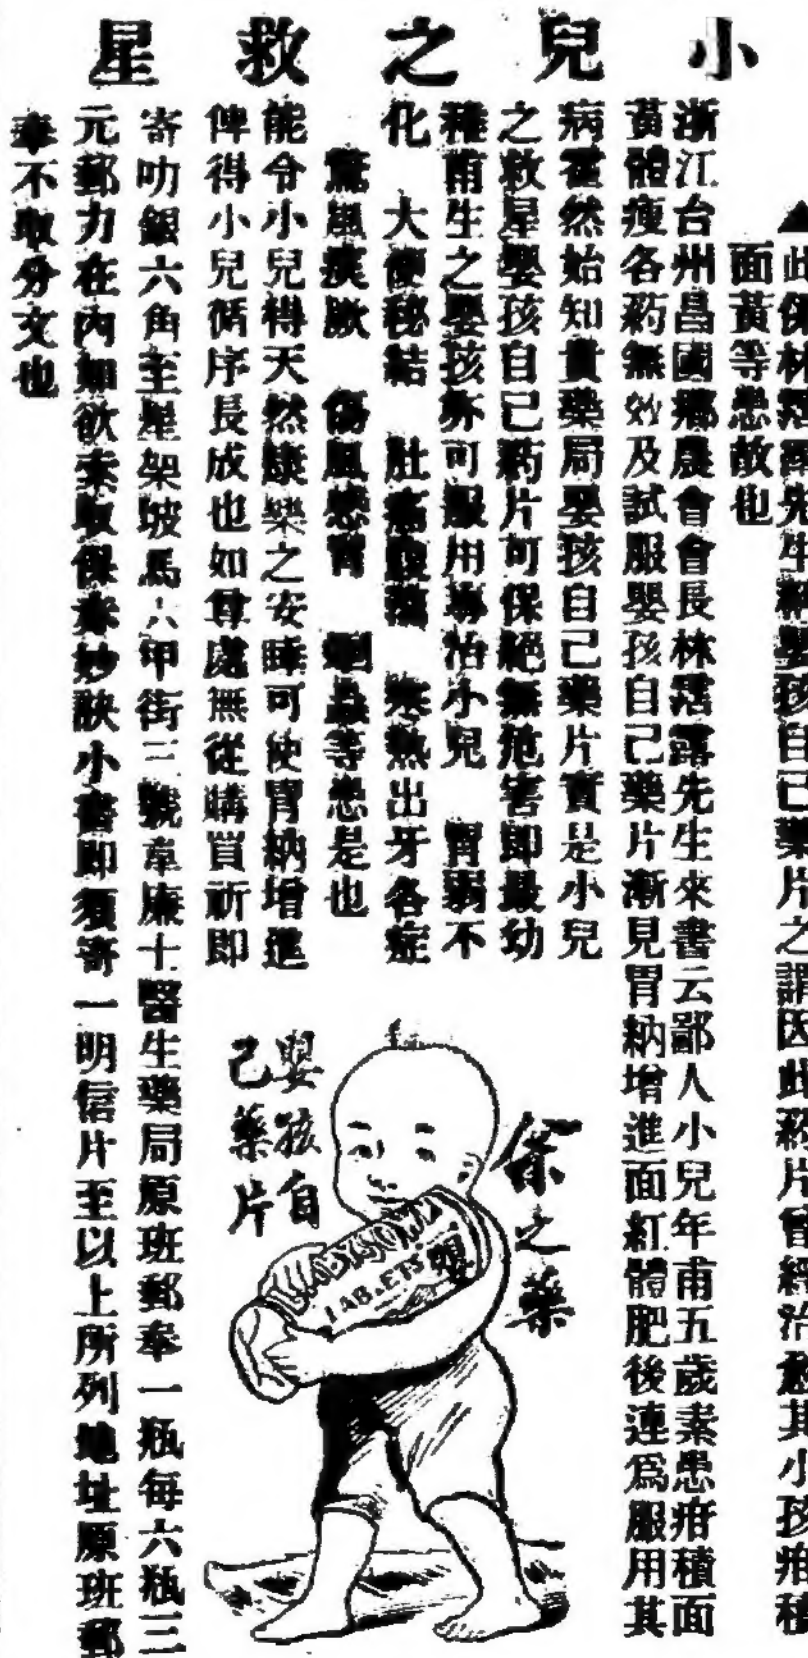 小兒之救星
▲此係林霑露先生稱嬰孩自己藥片之謂因此葯片曾經治愈其小孩疳積
面黃等患故也
浙江台州昌國鄉農會會長林霑露先生來書云鄙人小兒年甫五歲素患疳積面
黃體瘦各葯無效及試服嬰孩自己藥片漸見胃納增進面紅體肥後連爲服用其
病霍然始知貴藥局嬰孩自己藥片實是小兒
之救星嬰孩自己葯片可保絕無危害即最幼
穉甫生之嬰孩亦可服用專治小兒 胃弱不
化 大便秘結 肚痛腹瀉 寒熱出牙各症
驚風痰厥 傷風感冒 蛔蟲等患是也
能令小兒得天然康樂之安睡可使胃納增進
俾得小兒循序長成也如尊處無從購買祈即
寄叻銀六角至星架坡馬六甲街三號韋廉士醫生藥局原班郵奉一瓶每六瓶三
元郵力在內如欲索取保嬰妙訣小書即須寄一明信片至以上所列地址原班郵
奉不取分文也
余之藥
嬰孩自
己藥片
BABY'S OWN
TABLETS
嬰